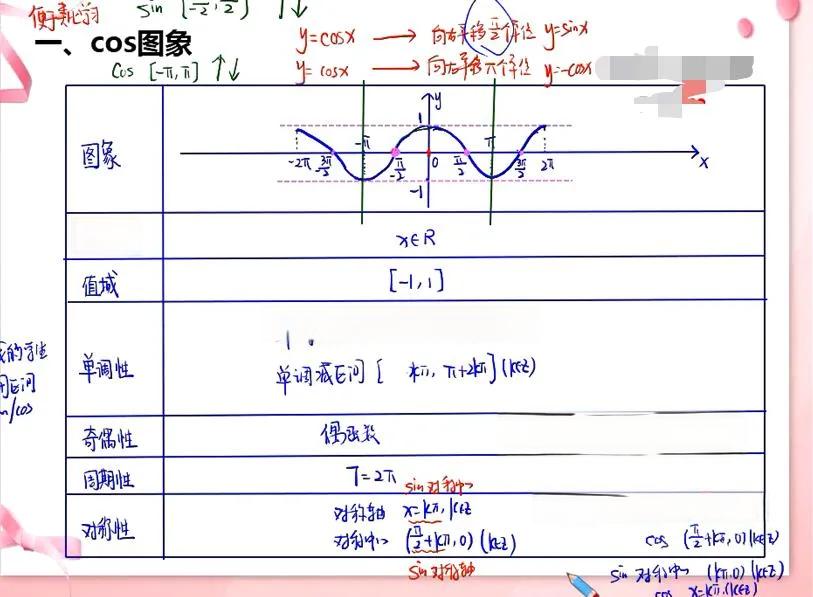 sin [-π/2, π/2] ↑↓
一、cos图象
cos [-π, π] ↑↓
y=cosx → 向右平移π/2个单位 y=sinx
y=cosx → 向右平移π个单位 y=-cosx
图象
y
1
-2π -3π/2 -π -π/2 0 π/2 π 3π/2 2π x
-1
x∈R
值域 [-1,1]
单调性
单调减区间 [ kπ, π+2kπ] (k∈Z)
奇偶性 偶函数
周期性 T=2π
sin对称中心
对称性 对称轴 x=kπ, k∈Z
对称中心 (π/2+kπ, 0) (k∈Z)
sin对称轴
cos (π/2+kπ, 0) (k∈Z)
sin 对称中心 (kπ, 0) (k∈Z)
cos x=kπ (k∈Z)